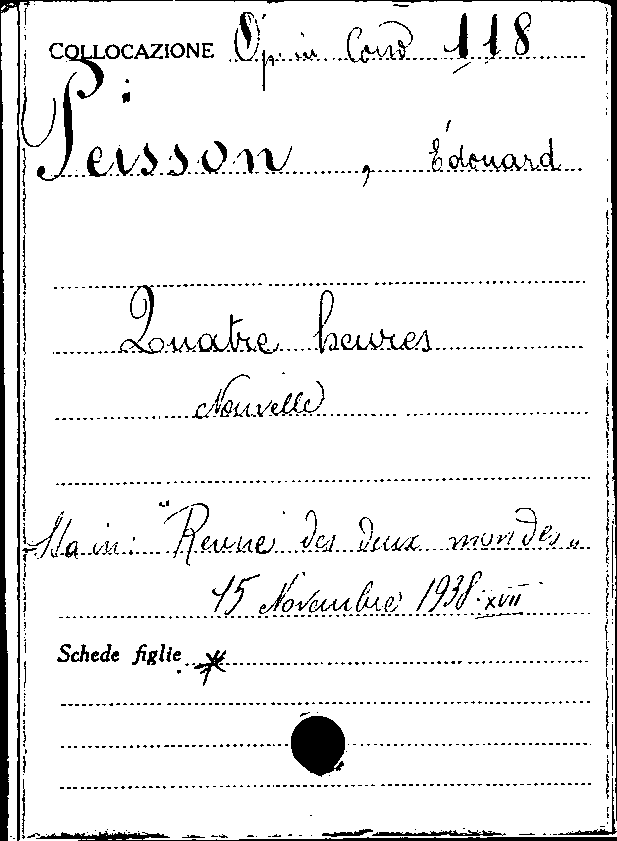 COLLOCAZIONE Op. in Cons 118
Peisson, Édouard
Quatre heures
Nouvelle
Sta in: "Revue des deux mondes"
15 Novembre 1938. XVII
Schede figlie *